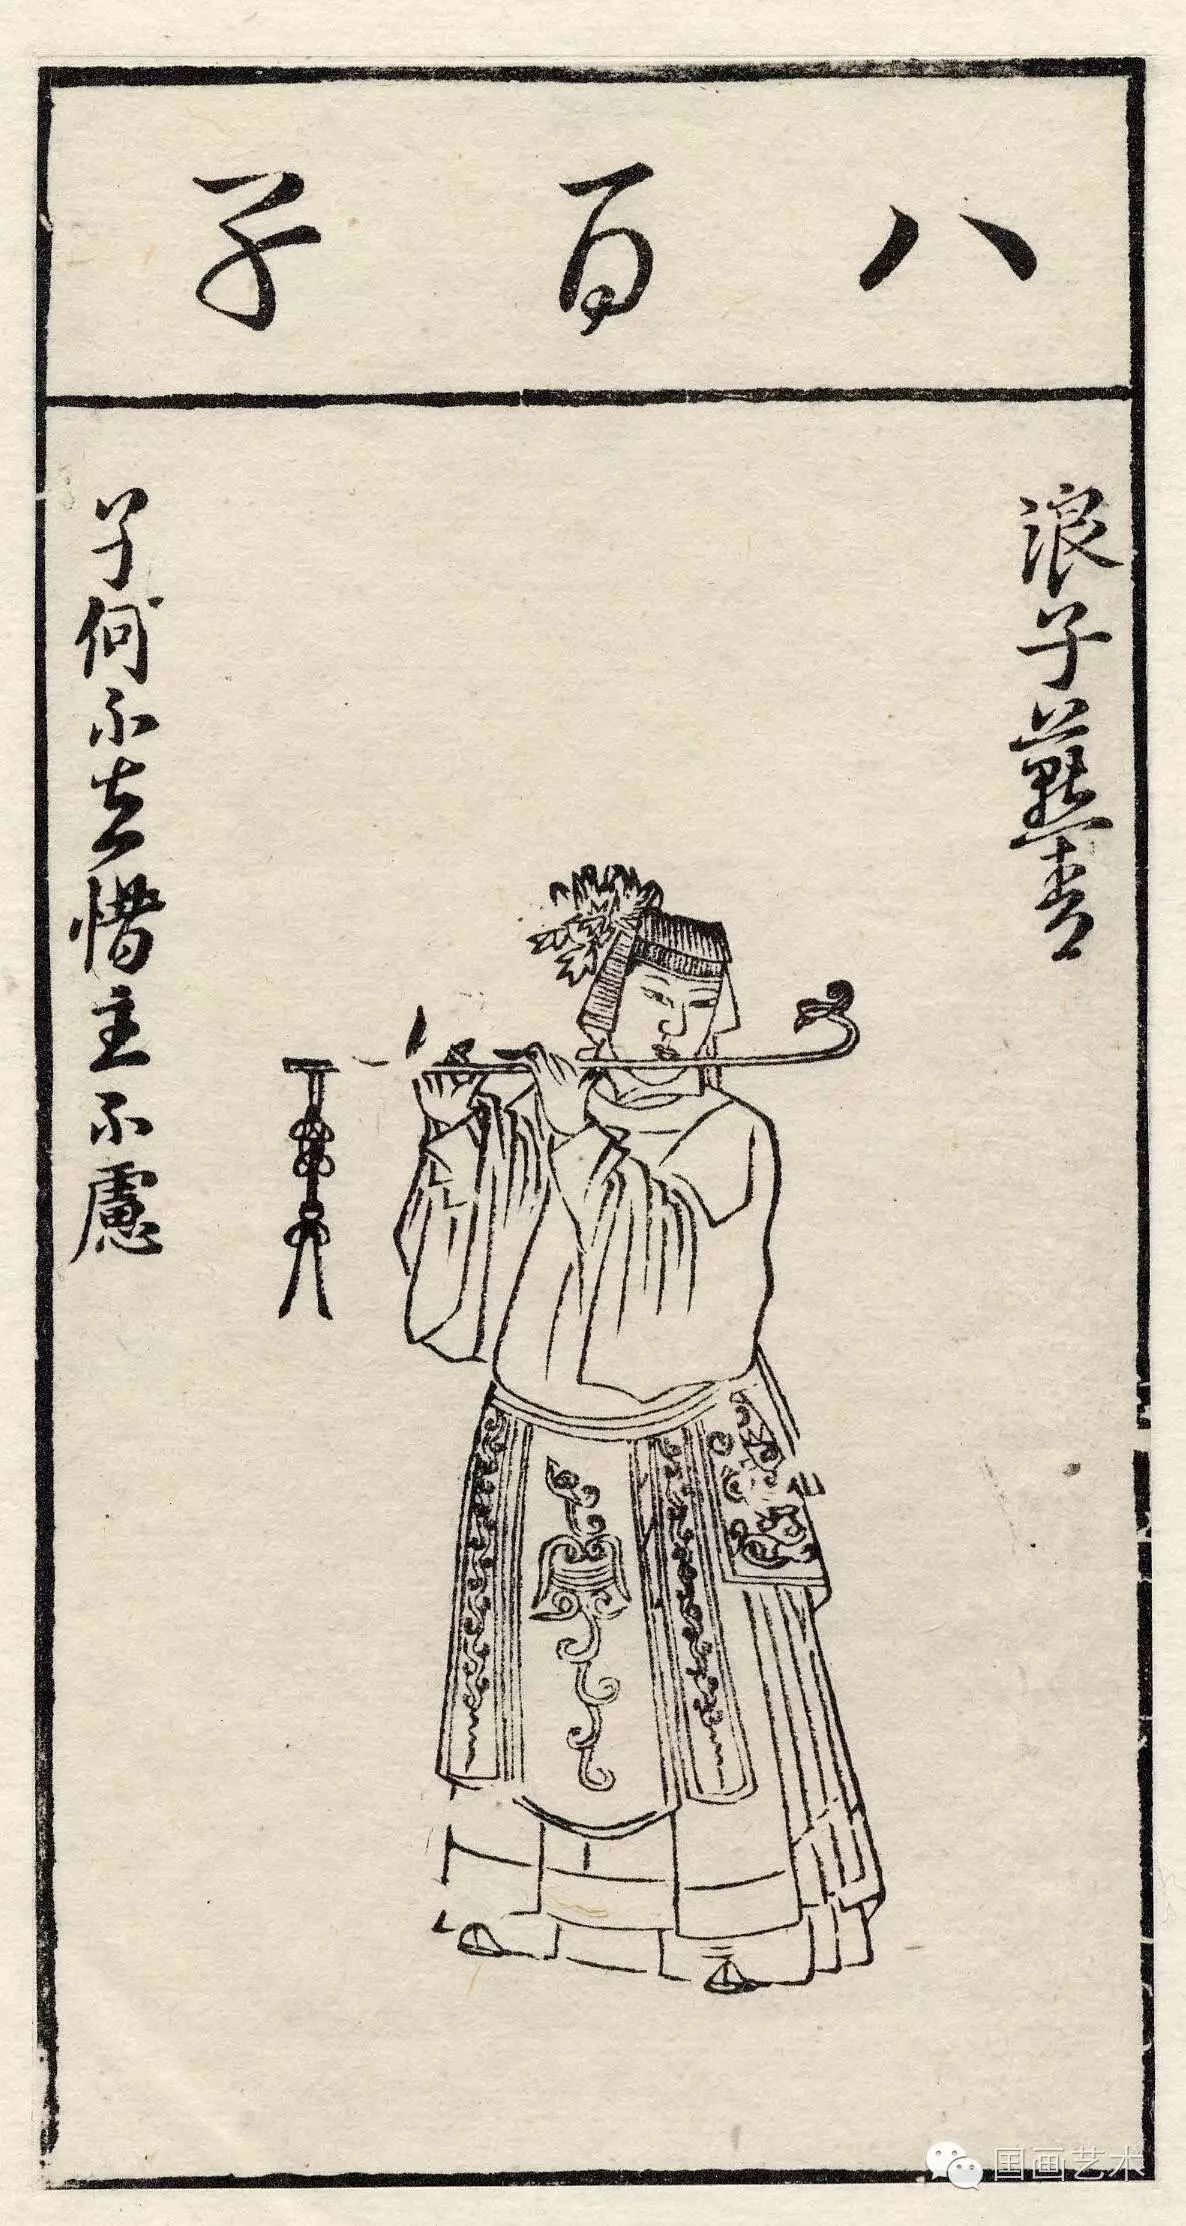 八百子
浪子燕青
子何不去惜主不慮
国画艺术